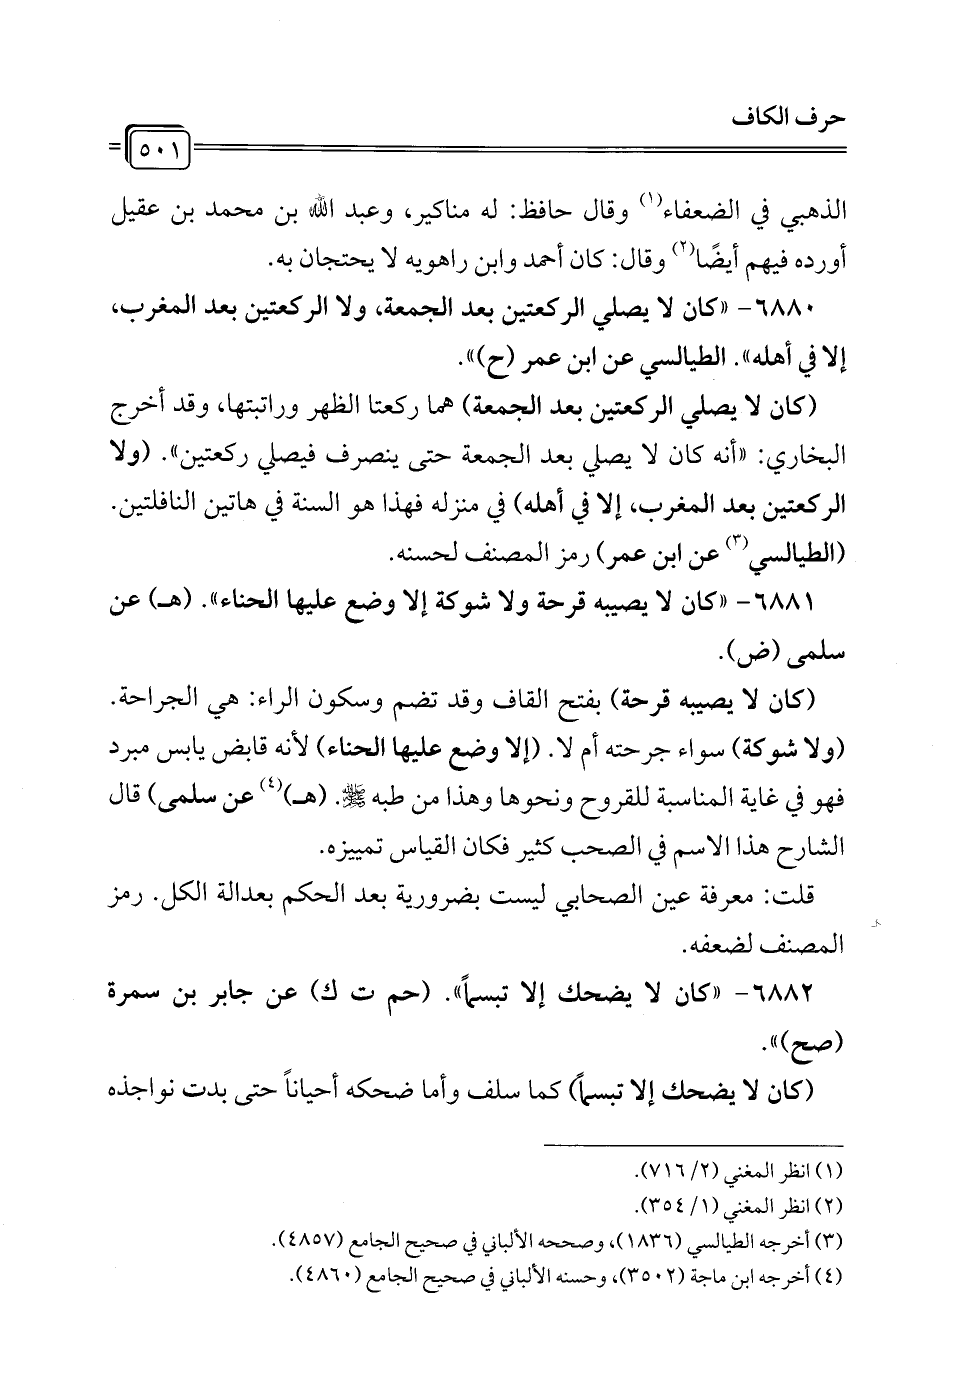 حرف الكاف
٥٠١
الذهبي في الضعفاء(١) وقال حافظ: له مناكير، وعبد الله بن محمد بن عقيل
أورده فيهم أيضًا(٢) وقال: كان أحمد وابن راهويه لا يحتجان به.
٦٨٨٠- «كان لا يصلي الركعتين بعد الجمعة، ولا الركعتين بعد المغرب،
إلا في أهله». الطيالسي عن ابن عمر (ح)».
(كان لا يصلي الركعتين بعد الجمعة) هما ركعتا الظهر وراتبتها، وقد أخرج
البخاري: «أنه كان لا يصلي بعد الجمعة حتى ينصرف فيصلي ركعتين». (ولا
الركعتين بعد المغرب، إلا في أهله) في منزله فهذا هو السنة في هاتين النافلتين.
(الطيالسي(٣) عن ابن عمر) رمز المصنف لحسنه.
٦٨٨١- «كان لا يصيبه قرحة ولا شوكة إلا وضع عليها الحناء». (هـ) عن
سلمى (ض).
(كان لا يصيبه قرحة) بفتح القاف وقد تضم وسكون الراء: هي الجراحة.
(ولا شوكة) سواء جرحته أم لا. (إلا وضع عليها الحناء) لأنه قابض يابس مبرد
فهو في غاية المناسبة للقروح ونحوها وهذا من طبه ﷺ. (هـ)(٤) عن سلمى) قال
الشارح هذا الاسم في الصحب كثير فكان القياس تمييزه.
قلت: معرفة عين الصحابي ليست بضرورية بعد الحكم بعدالة الكل. رمز
المصنف لضعفه.
٦٨٨٢- «كان لا يضحك إلا تبسماً». (حم ت ك) عن جابر بن سمرة
(صح)».
(كان لا يضحك إلا تبسماً) كما سلف وأما ضحكه أحياناً حتى بدت نواجذه
(١) انظر المغني (٢/ ٧١٦).
(٢) انظر المغني (١/ ٣٥٤).
(٣) أخرجه الطيالسي (١٨٣٦)، وصححه الألباني في صحيح الجامع (٤٨٥٧).
(٤) أخرجه ابن ماجة (٣٥٠٢)، وحسنه الألباني في صحيح الجامع (٤٨٦٠).